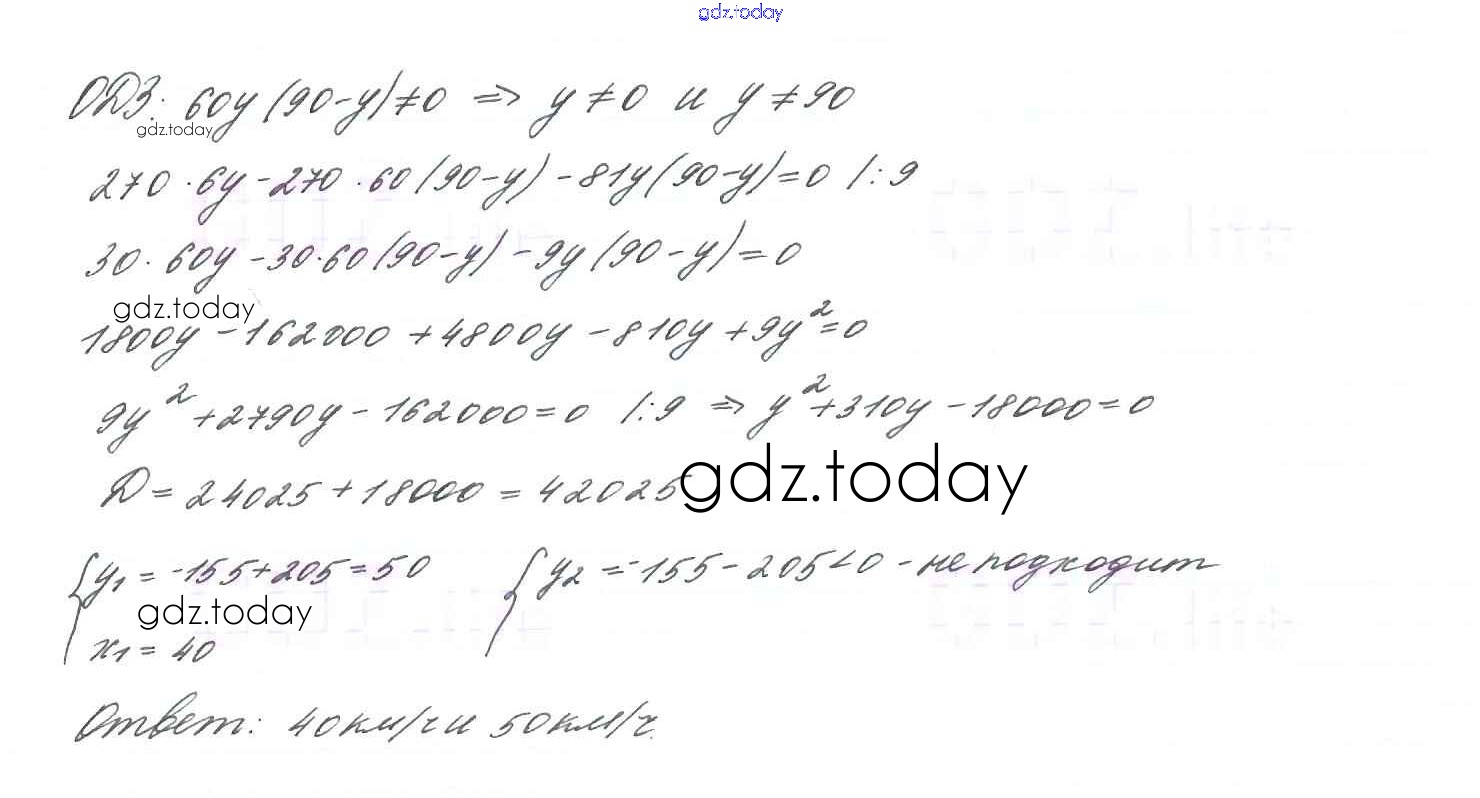 gdz.today
ОДЗ: 60y(90-y)≠0 ⇒ y≠0 и y≠90
gdz.today
270·6y-270·60(90-y)-81y(90-y)=0 /:9
30·60y-30·60(90-y)-9y(90-y)=0
gdz.today
1800y-162000+4800y-810y+9y²=0
9y²+2790y-162000=0 /:9 ⇒ y²+310y-18000=0
D=24025+18000=42025
gdz.today
{y₁=-155+205=50 {y₂=-155-205<0 - не подходит
gdz.today
x₁=40
Ответ: 40км/ч и 50км/ч.